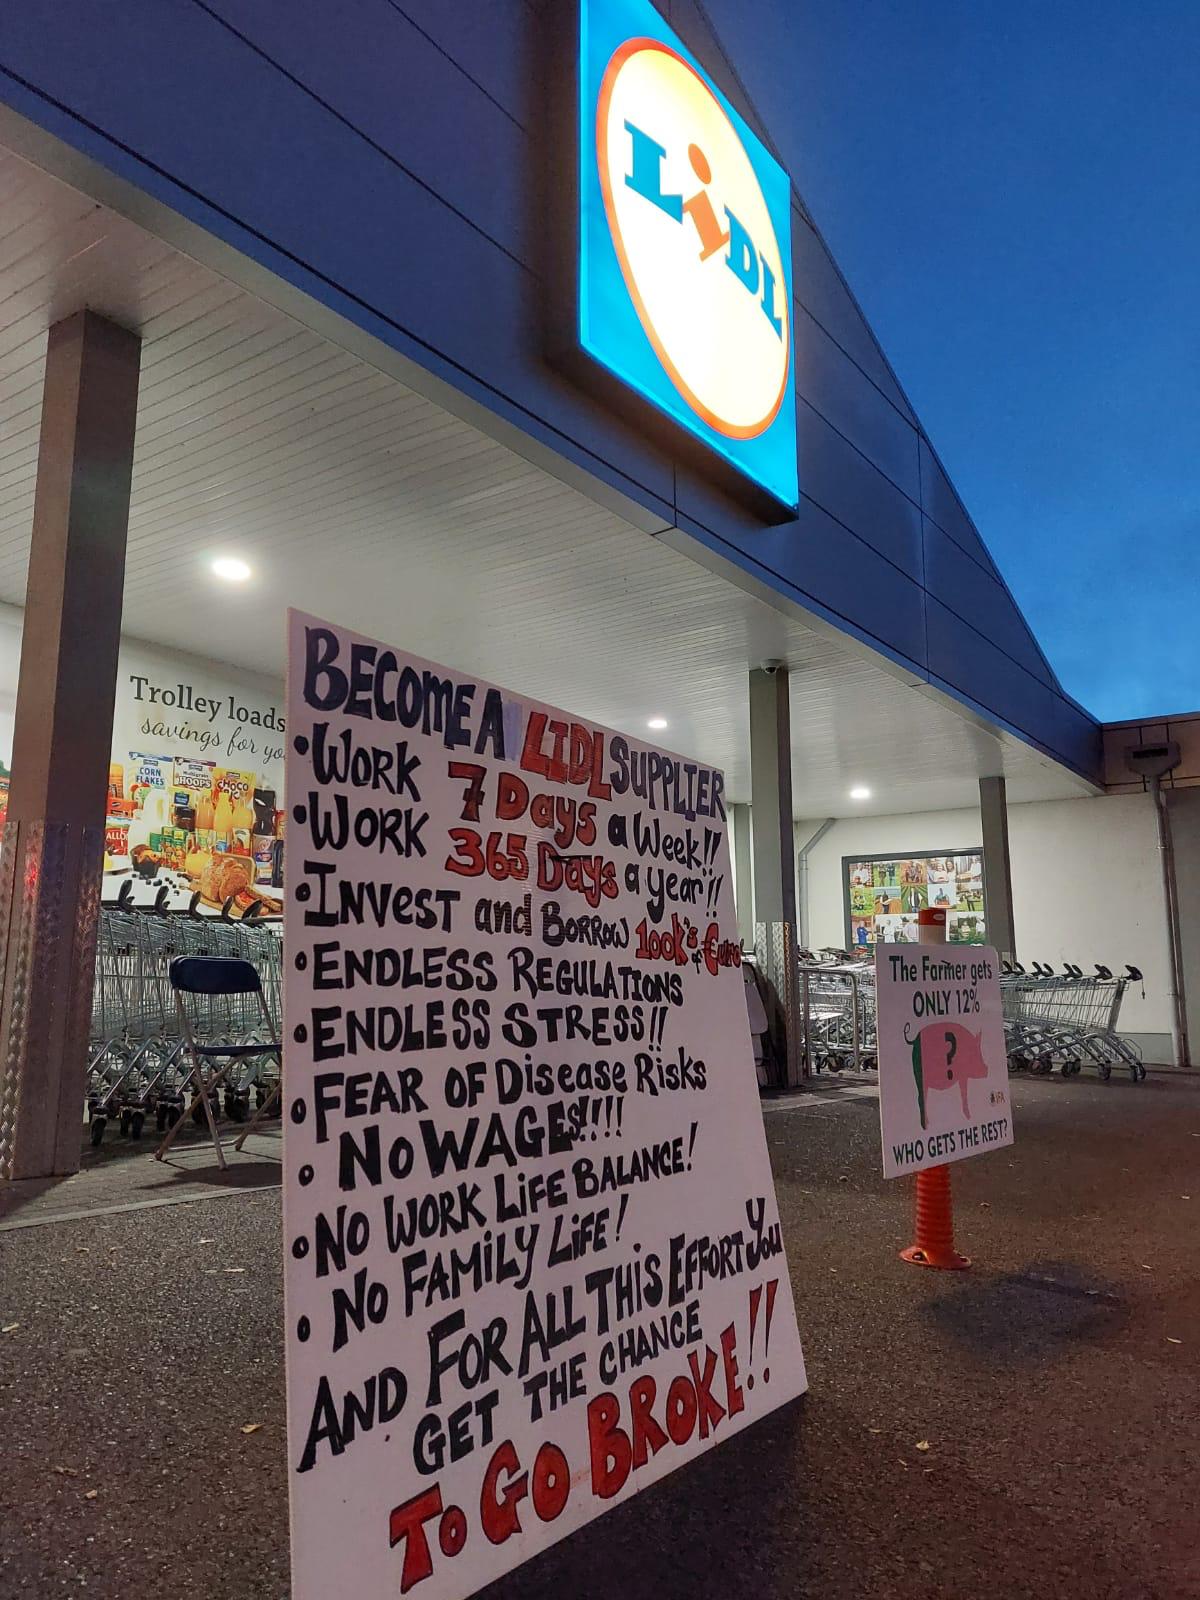 LiDL
Trolley loads
savings for yo
CORN
FLAKES
Multigrain
HOOPS
CHOCO
BECOME A LIDL SUPPLIER
•WORK 7 Days a Week!!
•WORK 365 Days a year!!
•INVEST and BORROW 100k's of €uro!
•ENDLESS REGULATIONS
•ENDLESS STRESS!!
•FEAR OF Disease Risks
•NO WAGES!!!!
•NO WORK LIFE BALANCE!
•NO FAMILY LIFE!
AND FOR ALL THIS EFFORT You
GET THE CHANCE
To GO BROKE!!
The Farmer gets
ONLY 12%
?
IFA
WHO GETS THE REST?